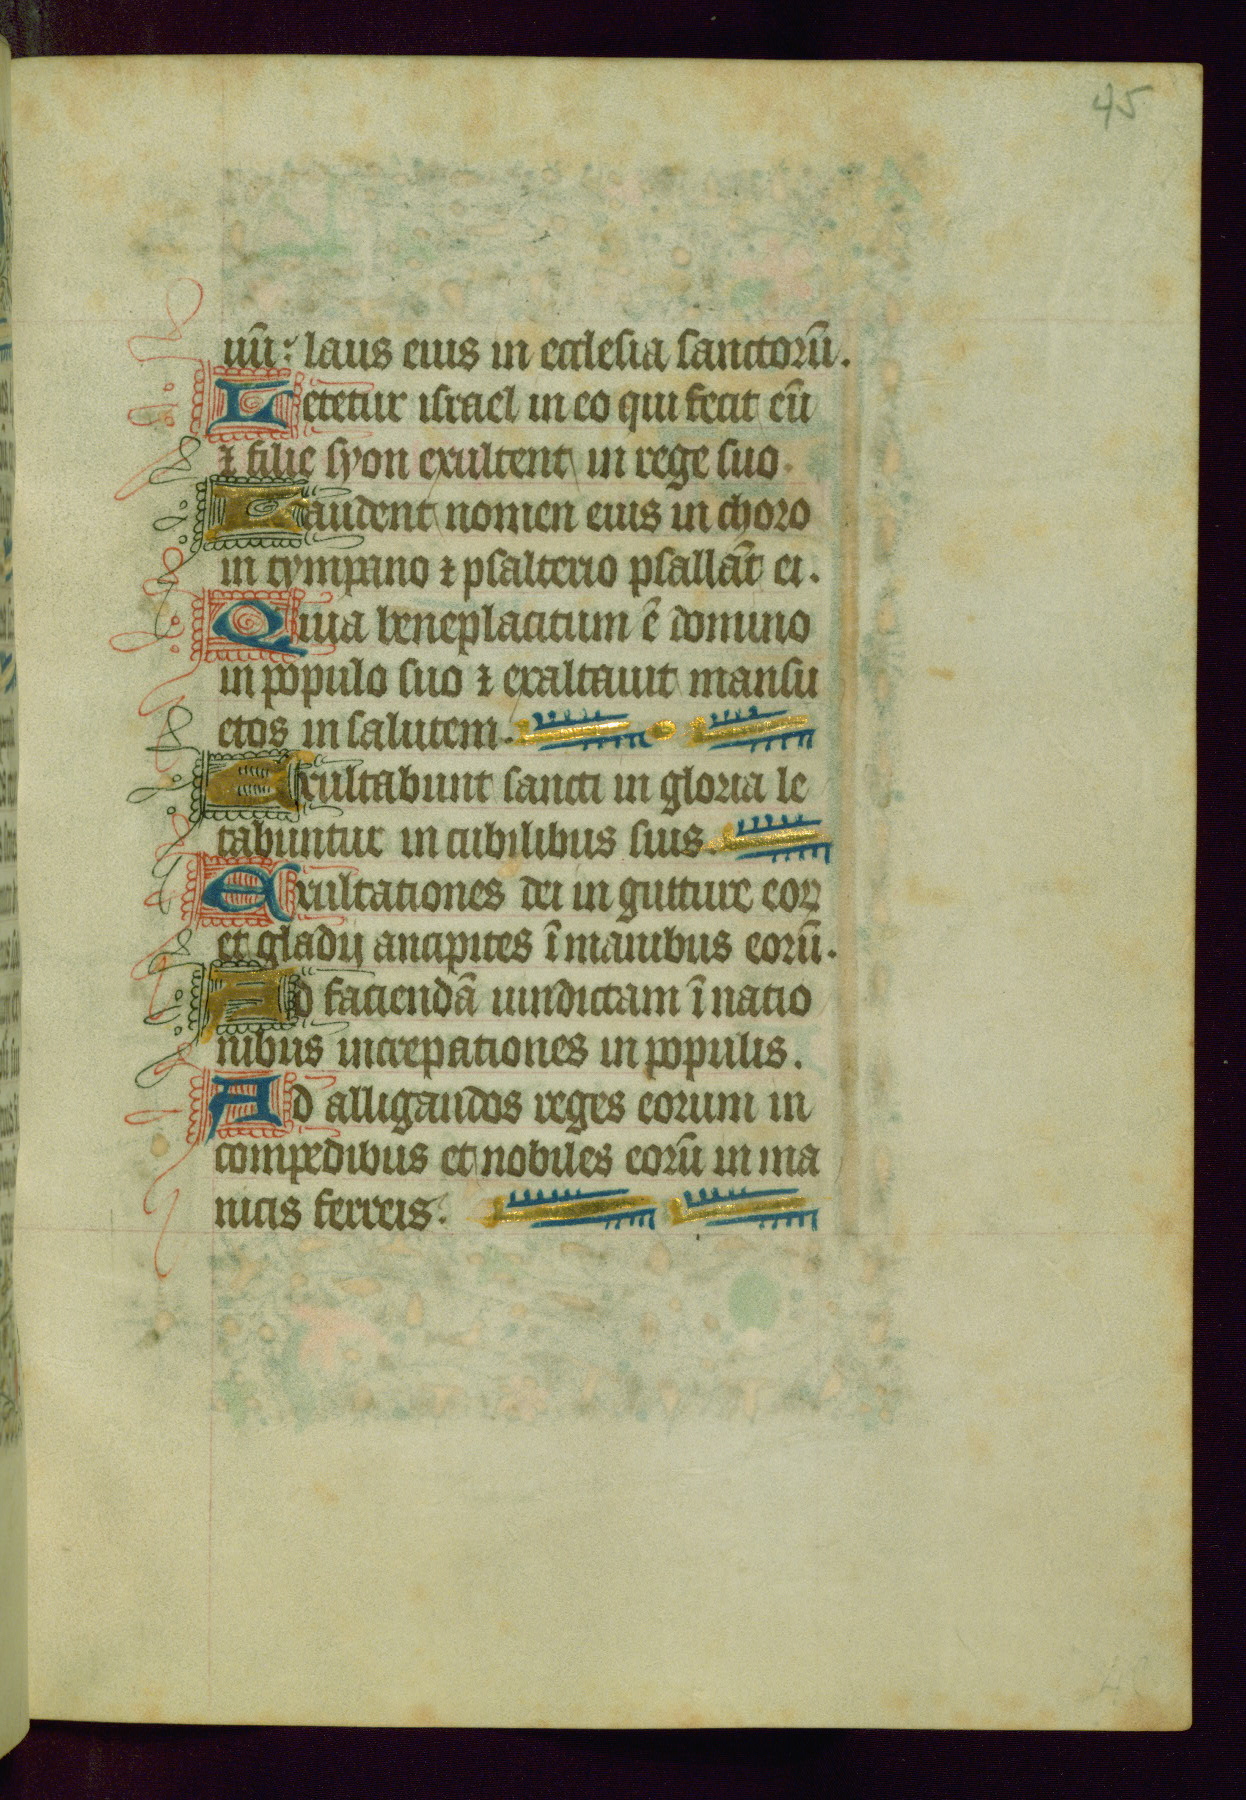 45
uū: laus eius in ecclesia sanctorū.
Letetur israel in eo qui fecit eū
⁊ filie syon exultent in rege suo.
Laudent nomen eius in choro
in tympano ⁊ psalterio psallāt ei.
Quia beneplacitum ē domino
in populo suo ⁊ exaltauit mansu
etos in salutem.
Exultabunt sancti in gloria le
tabuntur in cubilibus suis.
Exultationes dei in gutture eoꝝ
et gladij ancipites ī manibus eorū.
Ad faciendā uindictam ī natio
nibus increpationes in populis.
Ad alligandos reges eorum in
compedibus et nobiles eorū in ma
nicis ferreis.